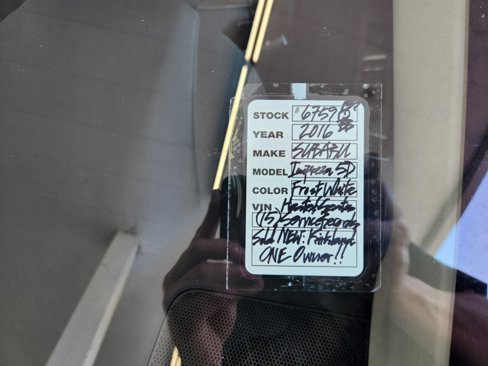 STOCK #6759
YEAR 2016
MAKE SUBARU
MODEL Impreza 5D
COLOR Frost White
VIN Heated Seats
(15) Service Records
Sold NEW: Pittsburgh
ONE Owner!!